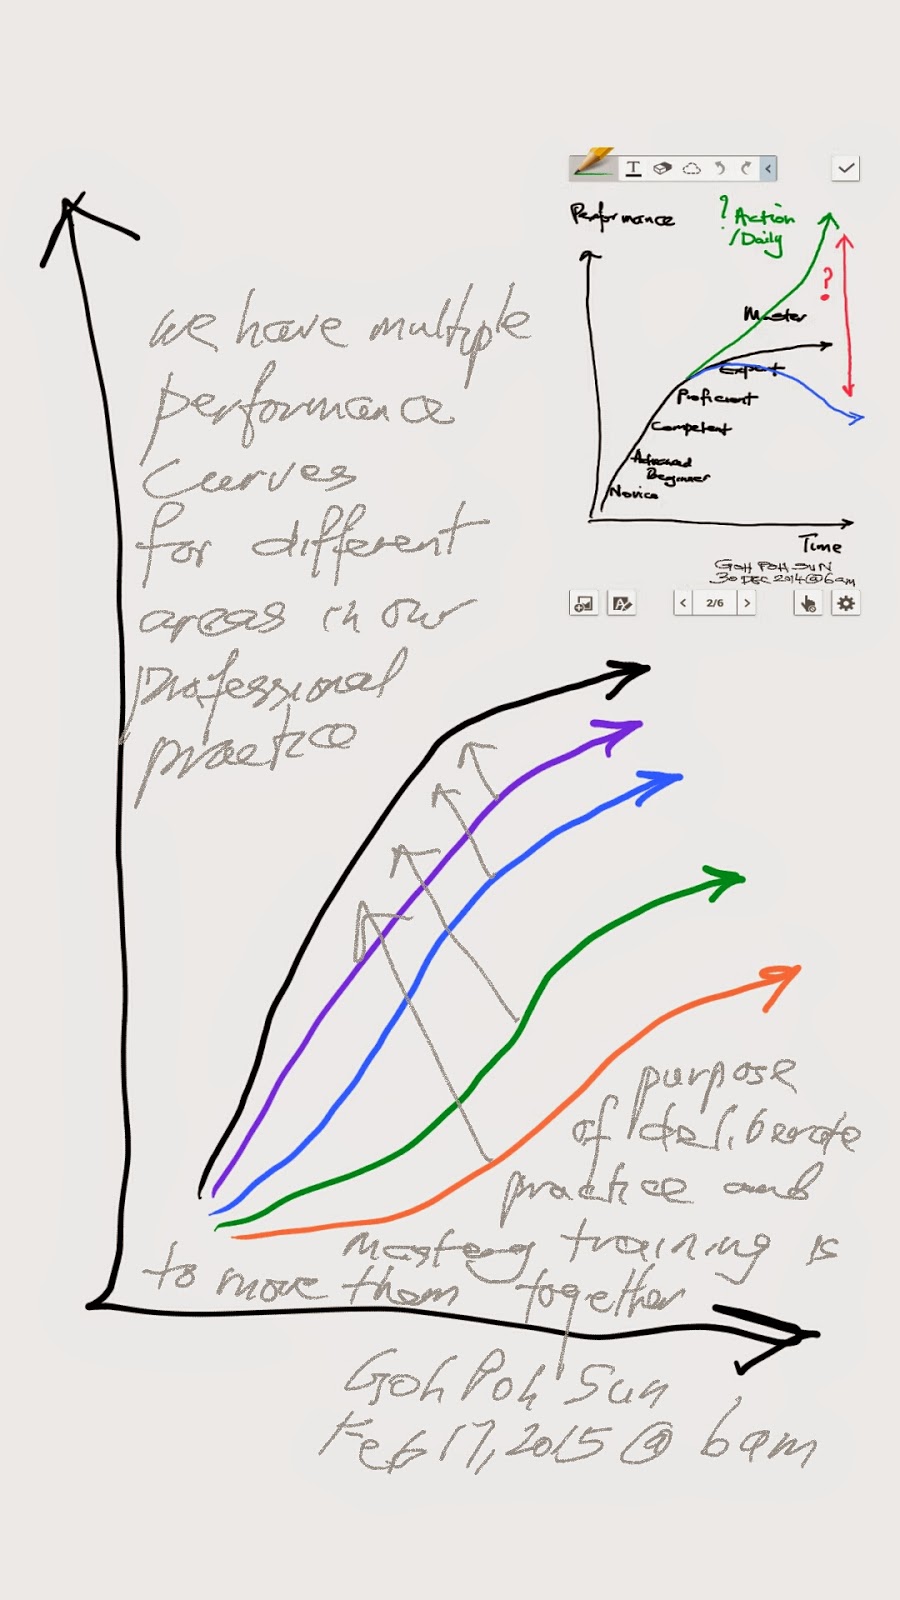 we have multiple
performance
curves
for different
areas in our
professional
practice
Performance
? Action
/Daily
?
Master
Expert
Proficient
Competent
Advanced
Beginner
Novice
Time
GOH POH SUN
30 DEC 2014@6am
2/6
purpose
of deliberate
practice and
mastery training is
to move them together
Goh Poh Sun
Feb 17, 2015 @ 6am